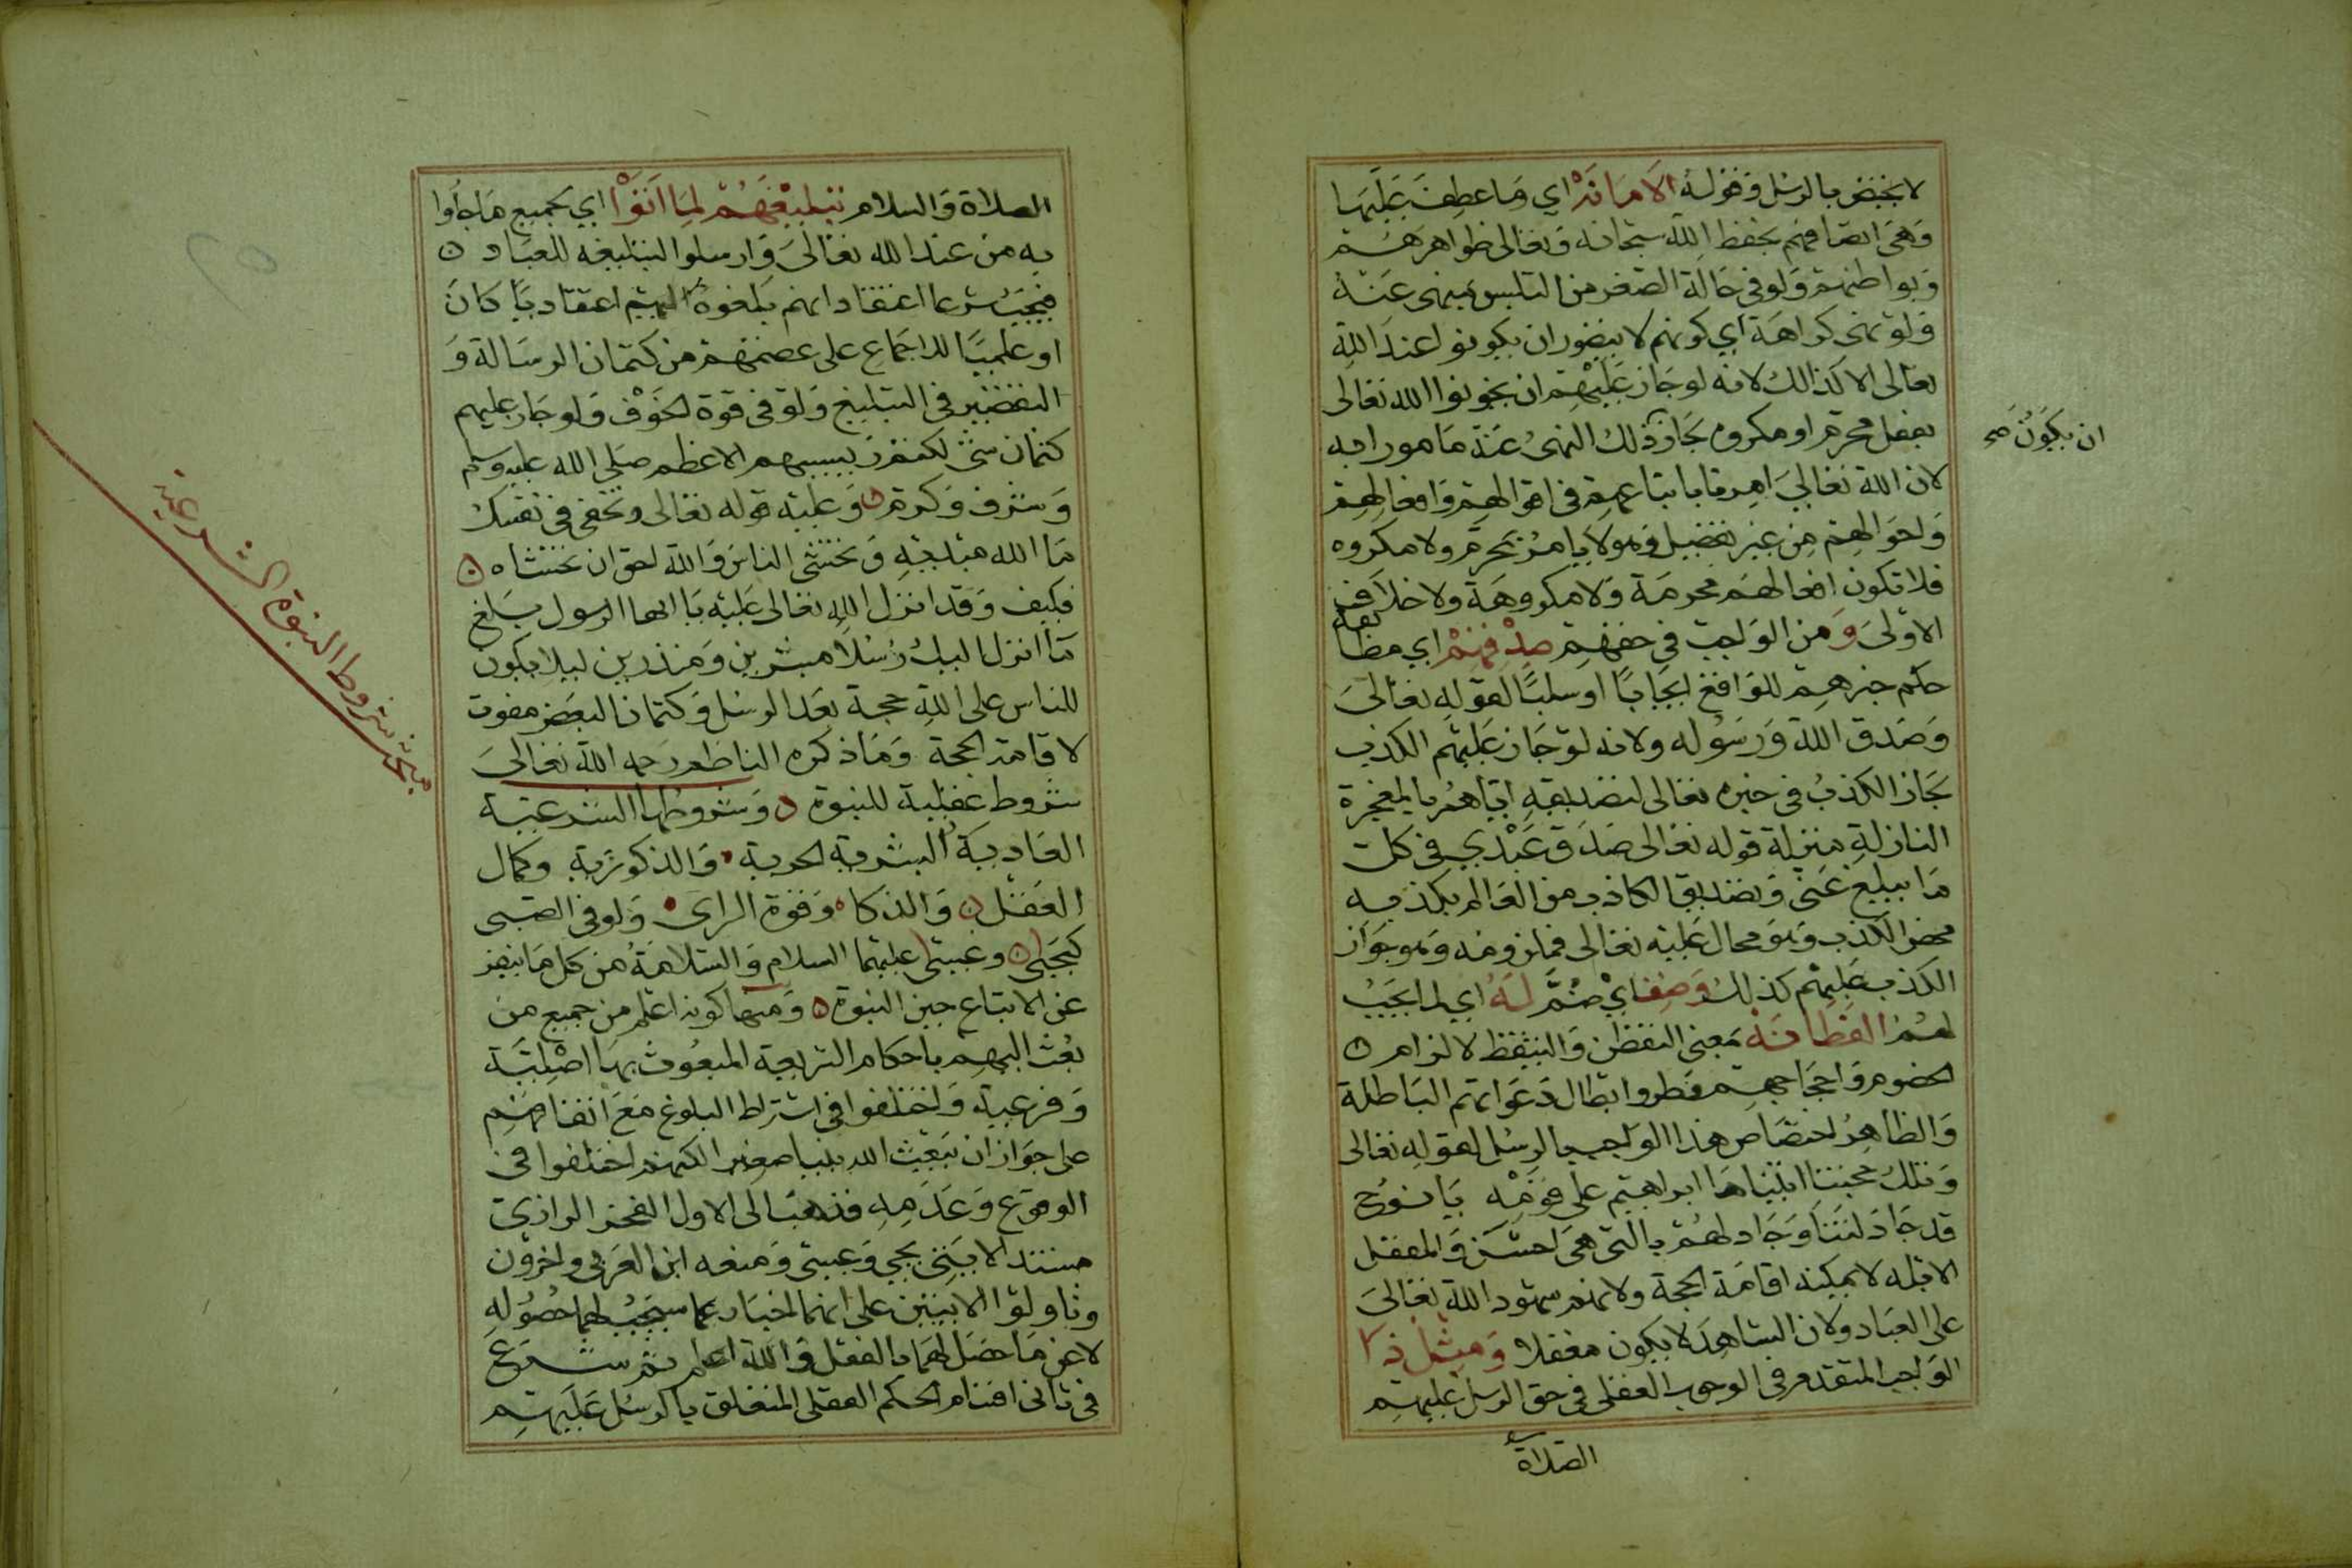 لا يختص بالرسل وقوله الأمانة اي وما عطف عليها
وهي اتصافهم بحفظ الله سبحانه وتعالى ظواهرهم
وبواطنهم ولو في حالة الصغر من التلبس بمنهى عنه
ولو نهى كراهة اي كونهم لا يتصور ان يكونوا عند الله
تعالى الا كذالك لانه لو جاز عليهم ان يخونوا الله تعالى
بفعل محرم او مكروه لجاز ذلك النهى عنه مامورا به
ان يكون صح
لان الله تعالى امرنا باتباعهم في اقوالهم وافعالهم
واحوالهم من غير تفصيل وهو لا يامر بمحرم ولا مكروه
فلا تكون افعالهم محرمة ولا مكروهة ولا خلاف
الاولى ومن الواجب في حقهم صدقهم اي مطابقة
حكم خبرهم للواقع ايجابا او سلبا لقوله تعالى
وصدق الله ورسوله ولانه لو جاز عليهم الكذب
لجاز الكذب في خبره تعالى لتصديقه اياهم بالمعجزة
النازلة منزلة قوله تعالى صدق عبدي في كل
ما يبلغ عنى وتصديق الكاذب من العالم بكذبه
محض الكذب وهو محال عليه تعالى فملزومه وهو جواز
الكذب عليهم كذلك وصف اي ضم له اي لما يجب
لهم الفطانة بمعنى التفطن والتيقظ لالزام
الخصوم واحجاجهم وطرو ابطال دعواتهم الباطلة
والظاهر اختصاص هذا الواجب بالرسل لقوله تعالى
وتلك حجتنا اتيناها ابراهيم على قومه يا نوح
قد جادلتنا وجادلهم بالتى هي احسن والمغفل
الابله لا يمكنه اقامة الحجة ولانهم شهود الله تعالى
على العباد ولان الشاهد لا يكون مغفلا ومثل ذا
الواجب المتقدم في الوجوب العقلى في حق الرسل عليهم
الصلاة
الصلاة والسلام تبليغهم لما اتوا اي بجميع ما جاؤا
به من عند الله تعالى وارسلوا لتبليغه للعباد
فيجب شرعا اعتقاد انهم بلغوه اليهم اعتقاديا كان
او علميا للاجماع على عصمتهم من كتمان الرسالة و
التقصير في التبليغ ولو في قوة الخوف ولو جاز عليهم
كتمان شى لكتم رئيسهم الاعظم صلى الله عليه وسلم
وشرف وكرم وعليه قوله تعالى وتخفى في نفسك
ما الله مبديه وتخشى الناس والله احق ان تخشاه
فكيف وقد انزل الله تعالى عليه يا ايها الرسول بلغ
ما انزل اليك رسلا مبشرين ومنذرين ليلا يكون
للناس على الله حجة بعد الرسل وكتمان البعض مفوت
لاقامة الحجة وما ذكره الناظم رحمه الله تعالى
شروط عقلية للنبوة وشروطها الشرعية
العادية البشرية الحرية والذكورية وكمال
العقل والذكاء وقوة الراى ولو في الصبى
كيحيى وعيسى عليهما السلام والسلامة من كل ما ينفر
عن الاتباع حين النبوة ومنها كونه اعلم من جميع من
بعث اليهم باحكام الشريعة المبعوث بها اصلية
وفرعية واختلفوا في اشتراط البلوغ مع اتفاقهم
على جواز ان يبعث الله نبيا صغيرا لكنهم اختلفوا في
الوقوع وعدمه فذهب الى الاول الفخر الرازى
مستندا لايتى يحيى وعيسى ومنعه ابن العربي واخرون
وتاولوا الايتين على انهما اخبار عما سيجب لهما حصوله
لا عن ما حصل لهما بالفعل والله اعلم ثم شرع
في ثانى اقسام الحكم العقلى المتعلق بالرسل عليهم
مبحث شروط النبوة الشرعية